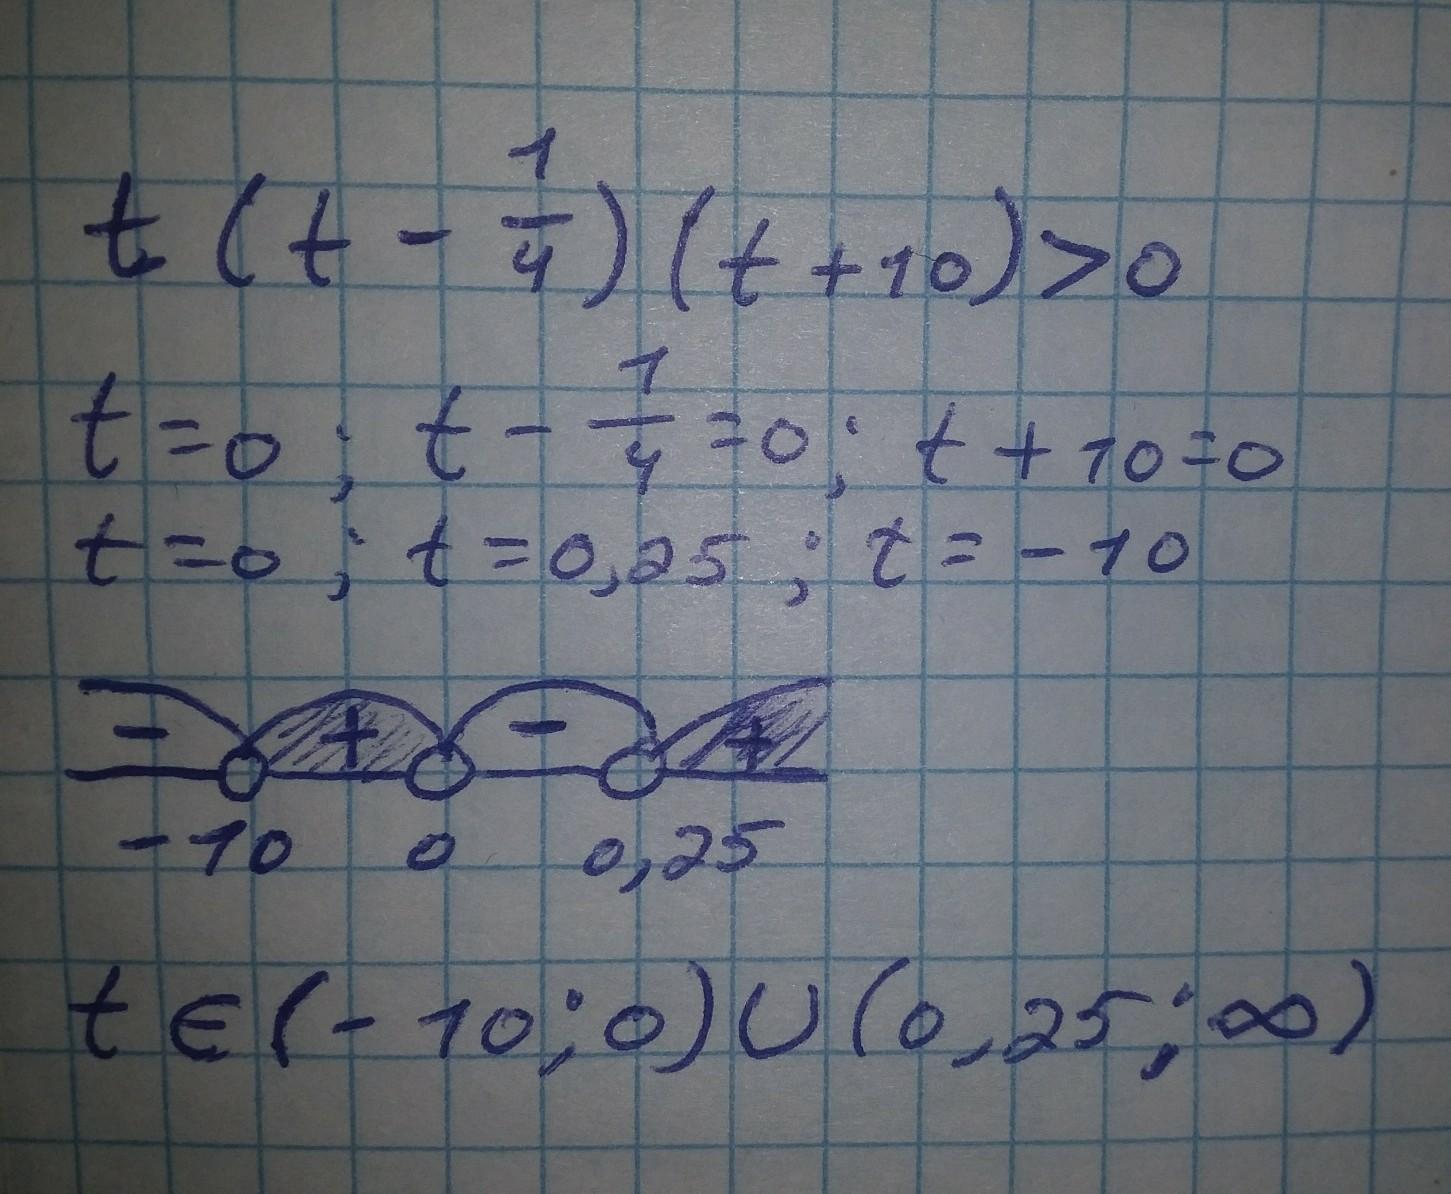 t(t - 1/4)(t + 10) > 0
t = 0 ; t - 1/4 = 0 ; t + 10 = 0
t = 0 ; t = 0,25 ; t = - 10
- + - +
- 10 0 0,25
t ∈ (- 10 ; 0) ∪ (0,25 ; ∞)